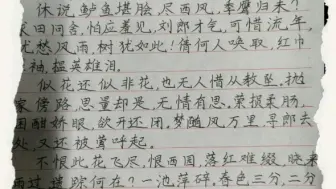 休说鲈鱼堪脍，尽西风，季鹰归来？
求田问舍，怕应羞见，刘郎才气。可惜流年，
忧愁风雨，树犹如此！倩何人唤取，红巾
袖，揾英雄泪。
似花还似非花，也无人惜从教坠。抛
家傍路，思量却是，无情有思。萦损柔肠，
困酣娇眼，欲开还闭。梦随风万里，寻郎去
处，又还被莺呼起。
不恨此花飞尽，恨西园，落红难缀。晓来
雨过，遗踪何在？一池萍碎。春色三分，二分